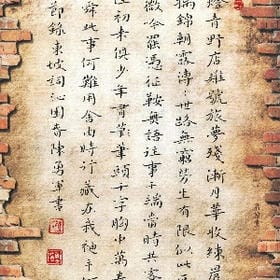 燈青野店雞號旅夢殘漸月華收練晨
錦朝露漙〻世路無窮勞生有限似此
微吟罷憑征鞍無語往事千端當時共客
初來俱少年筆頭千字胸中萬卷
舜此事何難用舍由時行藏在我袖手何
節錄東坡詞沁園春陳勇軍書